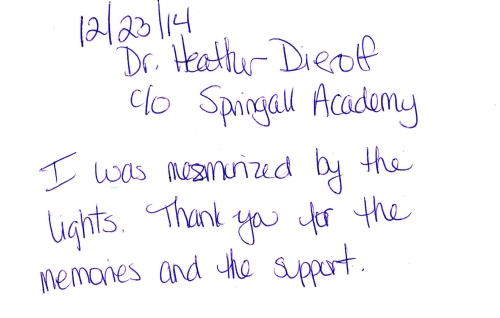 12/23/14
Dr. Heather Dierolf
c/o Springall Academy
I was mesmerized by the
lights. Thank you for the
memories and the support.